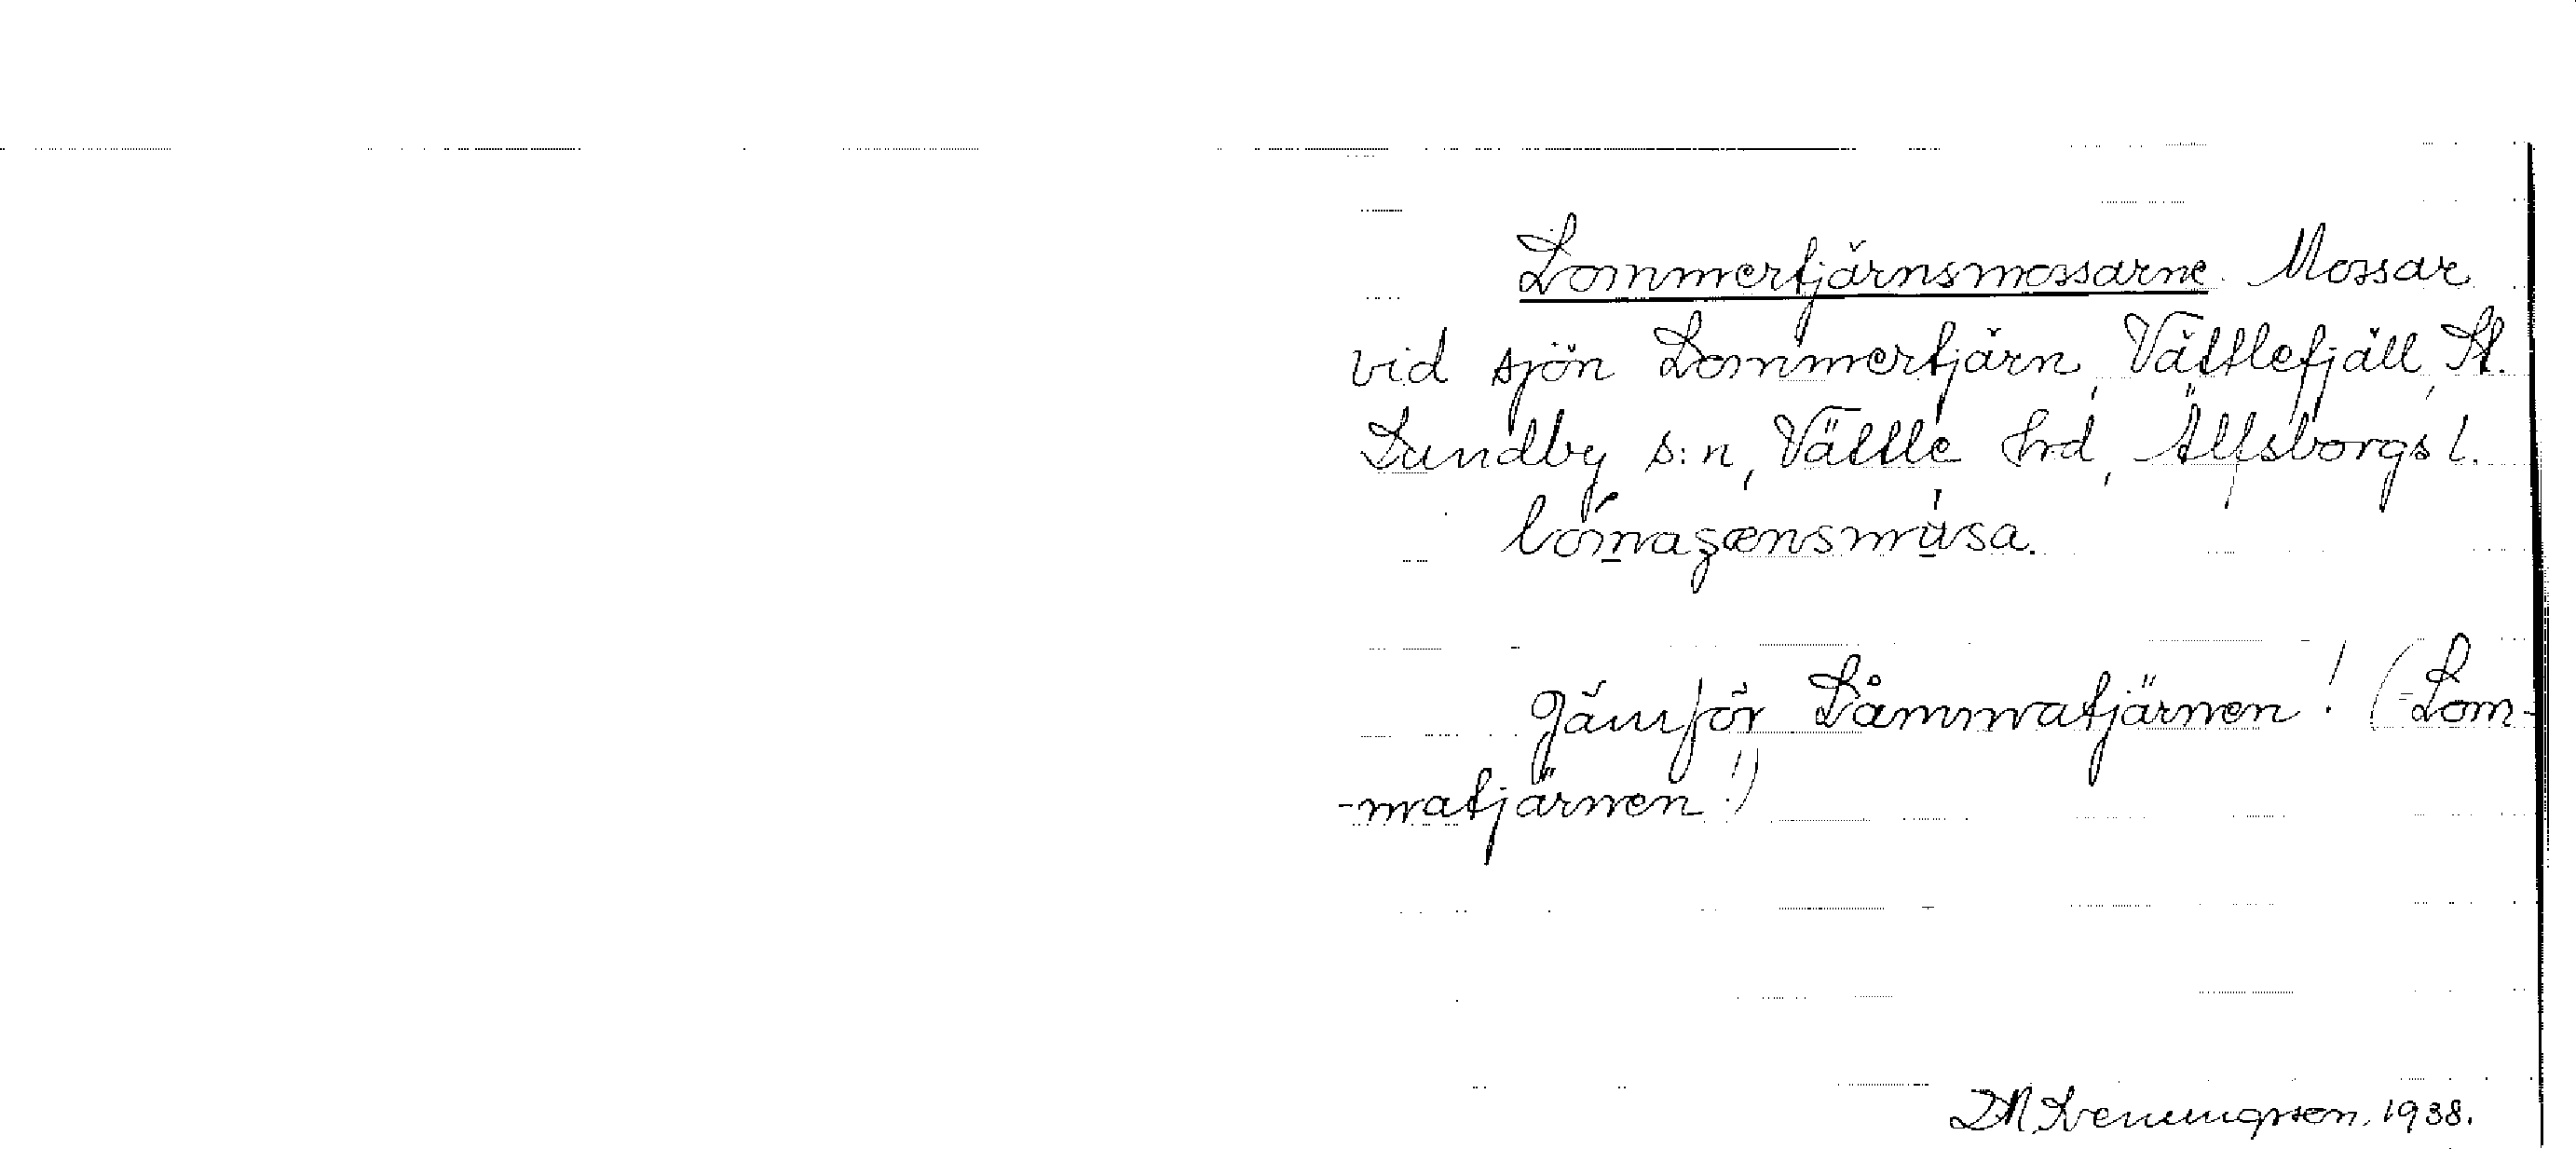 Lommertjärnsmossarne. Mossar
vid sjön Lommertjärn, Vättlefjäll, St.
Lundby s:n, Vättle hrd, Älfsborgs l.
Jämför Låmmatjärnen! (=Lom-
-matjärnen!)
1938.